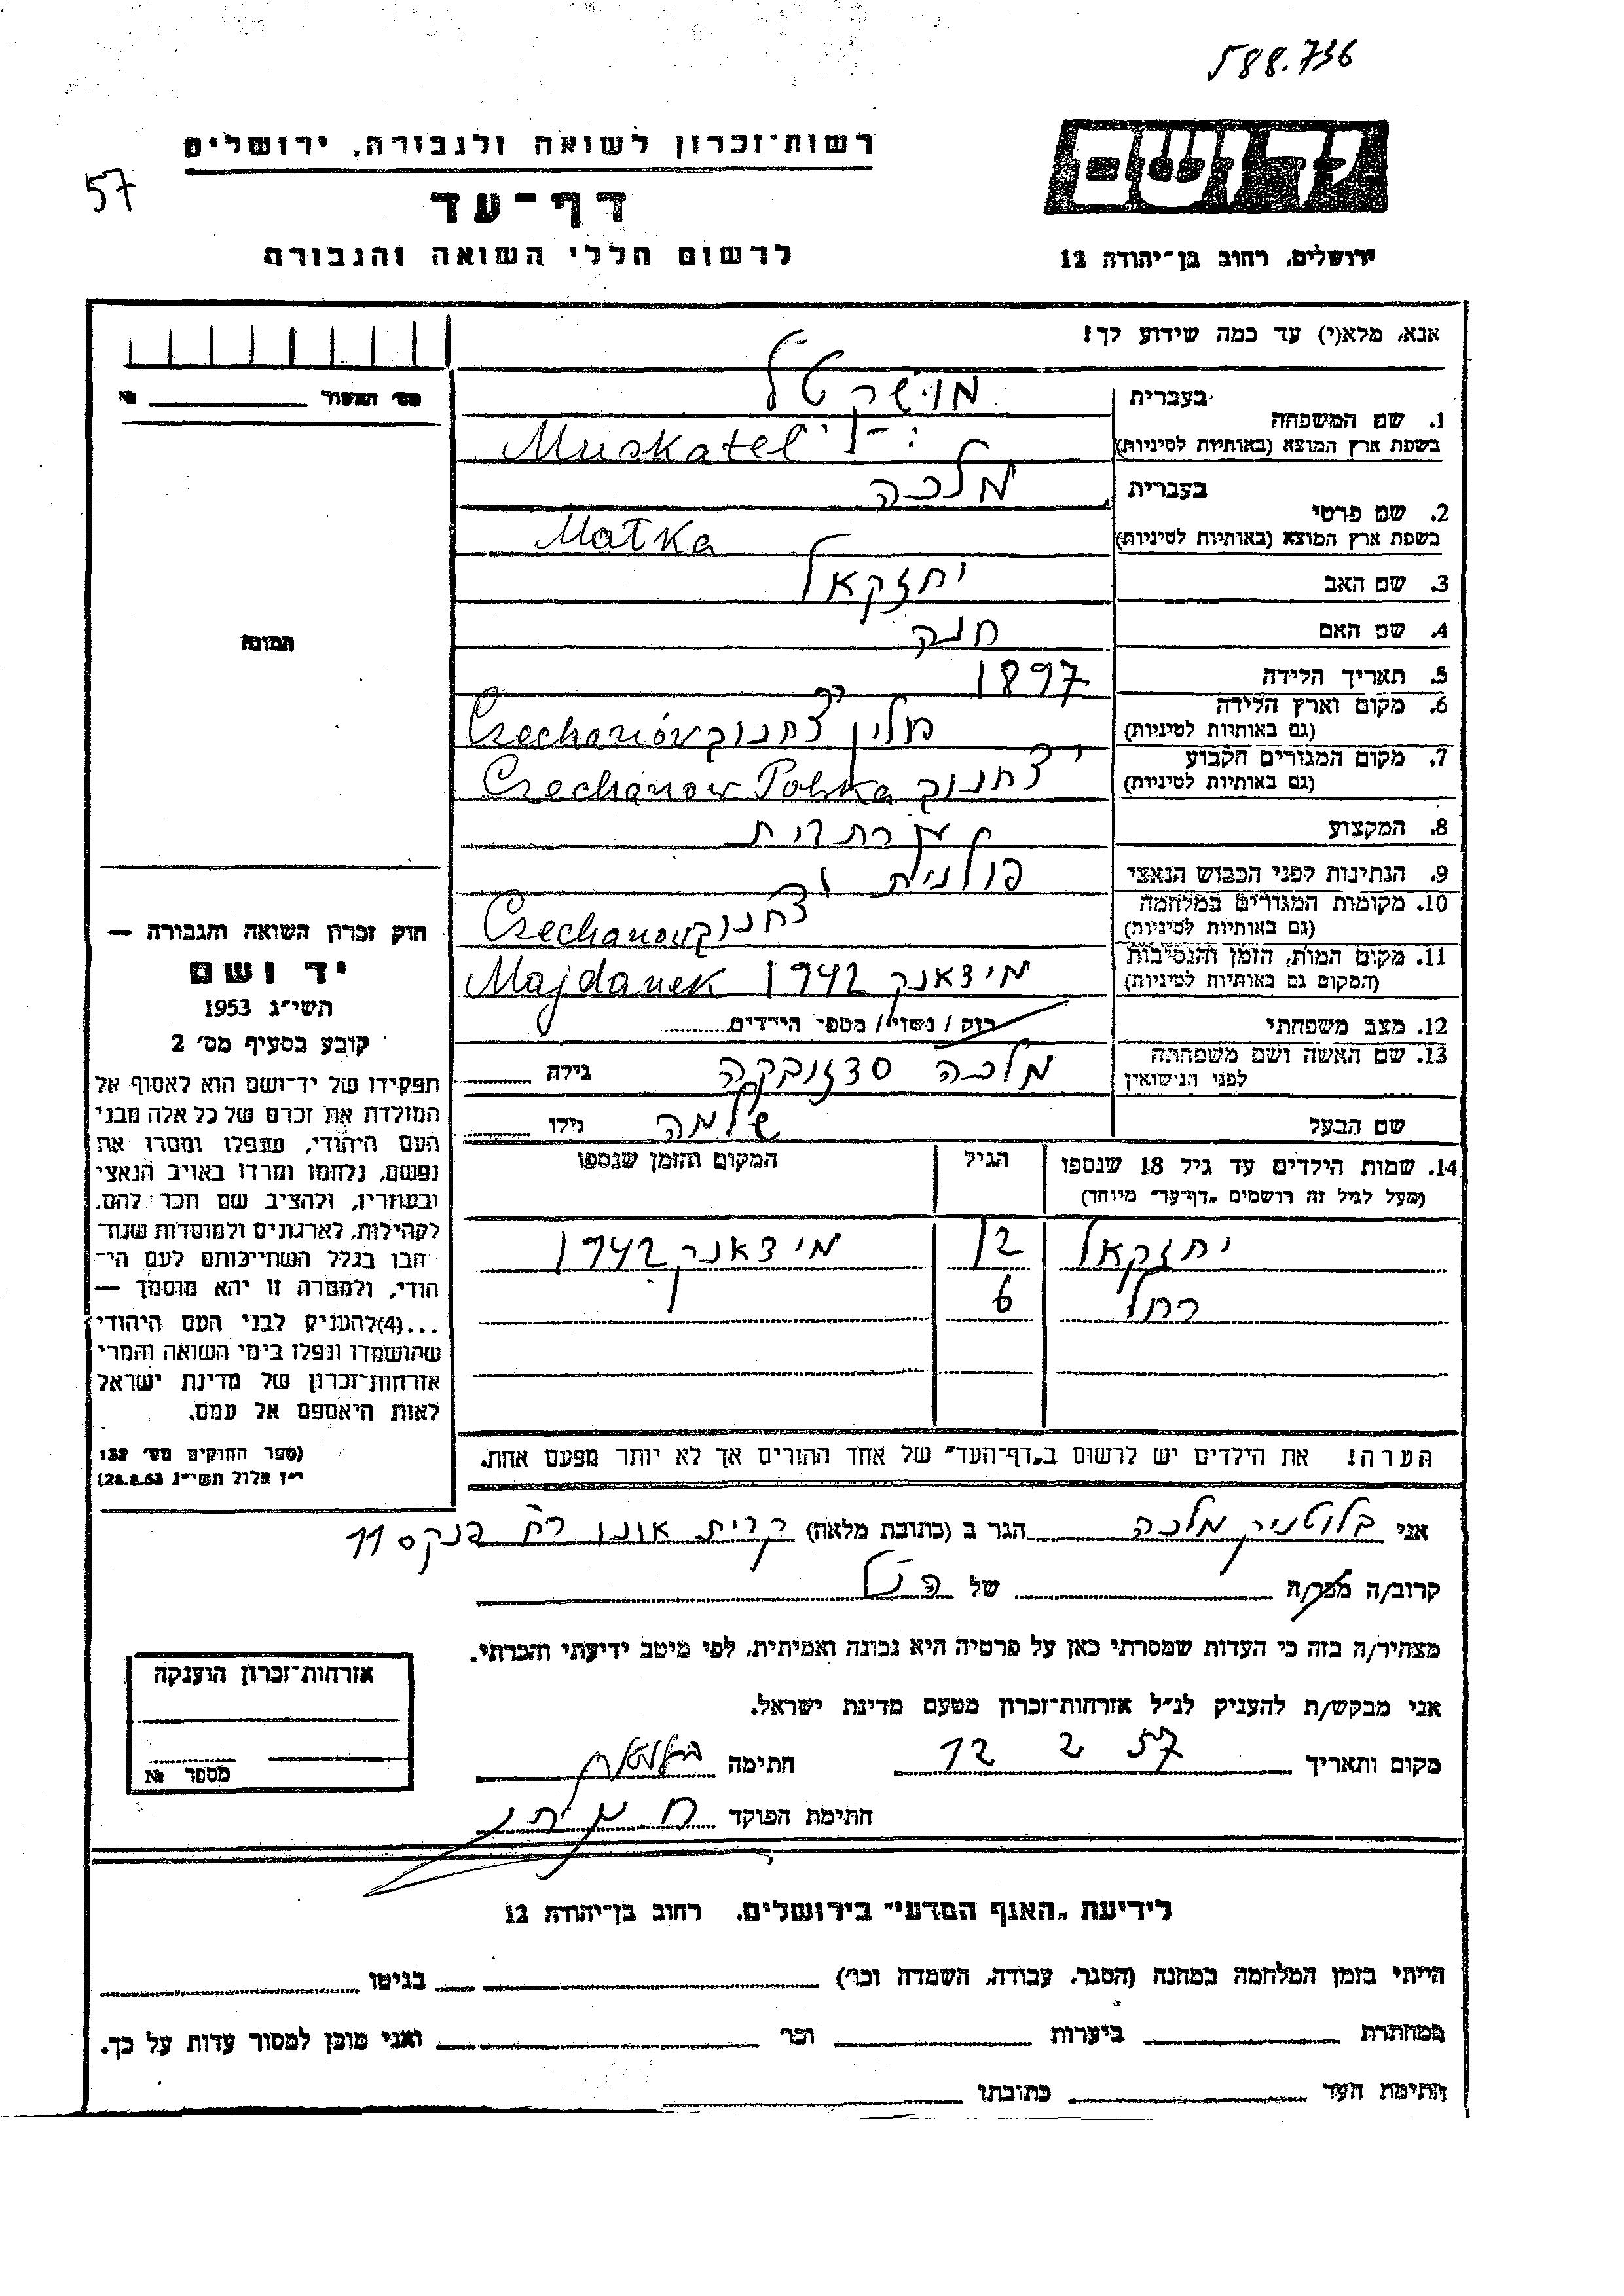 588.736
57
רשות־זכרון לשואה ולגבורה, ירושלים
דף־עד
לרשום חללי השואה והגבורה
יד ושם
ירושלים, רחוב בן־יהודה 12
אנא, מלא(י) עד כמה שידוע לך!
מס׳ האשור №
1. שם המשפחה
בעברית מושקטל
בשפת ארץ המוצא (באותיות לטיניות) Muskatel
2. שם פרטי
בעברית מלכה
בשפת ארץ המוצא (באותיות לטיניות) Małka
3. שם האב יחזקאל
4. שם האם חנה
5. תאריך הלידה 1897
6. מקום וארץ הלידה
(גם באותיות לטיניות) פולין Czechanów
7. מקום המגורים הקבוע
(גם באותיות לטיניות) Czechanow Polska
8. המקצוע
9. הנתינות לפני הכבוש הנאצי פולנית
10. מקומות המגורים במלחמה
(גם באותיות לטיניות) Czechanow
11. מקום המות, הזמן והנסיבות
(המקום גם באותיות לטיניות) מידאנק 1942 Majdanek
12. מצב משפחתי רוק / נשוי / מספר הילדים
13. שם האשה ושם משפחתה
לפני הנישואין מלכה גילה
שם הבעל שלמה גילו
14. שמות הילדים עד גיל 18 שנספו הגיל המקום והזמן שנספו
(מעל לגיל זה רושמים „דף־עד״ מיוחד)
יחזקאל 12 מידאנק 1942
רחל 6
הערה! את הילדים יש לרשום ב„דף־העד״ של אחד ההורים אך לא יותר מפעם אחת.
התמונה
חוק זכרון השואה והגבורה —
יד ושם
תשי״ג 1953
קובע בסעיף מס׳ 2
תפקידו של יד־ושם הוא לאסוף אל
המולדת את זכרם של כל אלה מבני
העם היהודי, שנפלו ומסרו את
נפשם, נלחמו ומרדו באויב הנאצי
ובעוזריו, ולהציב שם וזכר להם,
לקהילות, לארגונים ולמוסדות שנח־
רבו בגלל השתייכותם לעם הי־
הודי, ולמטרה זו יהא מוסמך —
...(4)להעניק לבני העם היהודי
שהושמדו ונפלו בימי השואה והמרי
אזרחות־זכרון של מדינת ישראל
לאות היאספם אל עמם.
(ספר החוקים מס׳ 132
י״ז אלול תשי״ג 28.8.53)
אני בלוטניק מלכה הגר ב (כתובת מלאה) קרית אונו רח׳ פנקס 11
קרוב/ה מכר/ה של הנ״ל
מצהיר/ה בזה כי העדות שמסרתי כאן על פרטיה היא נכונה ואמיתית, לפי מיטב ידיעתי והכרתי.
אני מבקש/ת להעניק לנ״ל אזרחות־זכרון מטעם מדינת ישראל.
מקום ותאריך 12 2 57 חתימה
חתימת הפוקד
אזרחות־זכרון הוענקה
מספר №
לידיעת „האגף המדעי״ בירושלים, רחוב בן־יהודה 12
הייתי בזמן המלחמה במחנה (הסגר, עבודה, השמדה וכו׳) בגיטו
במחתרת ביערות וכו׳ ואני מוכן למסור עדות על כך.
חתימת העד כתובתו